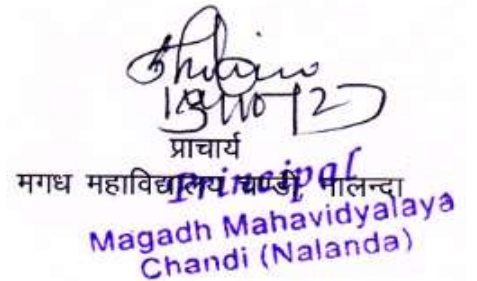 प्राचार्य
मगध महाविद्यालय चण्डी नालन्दा
Principal
Magadh Mahavidyalaya
Chandi (Nalanda)